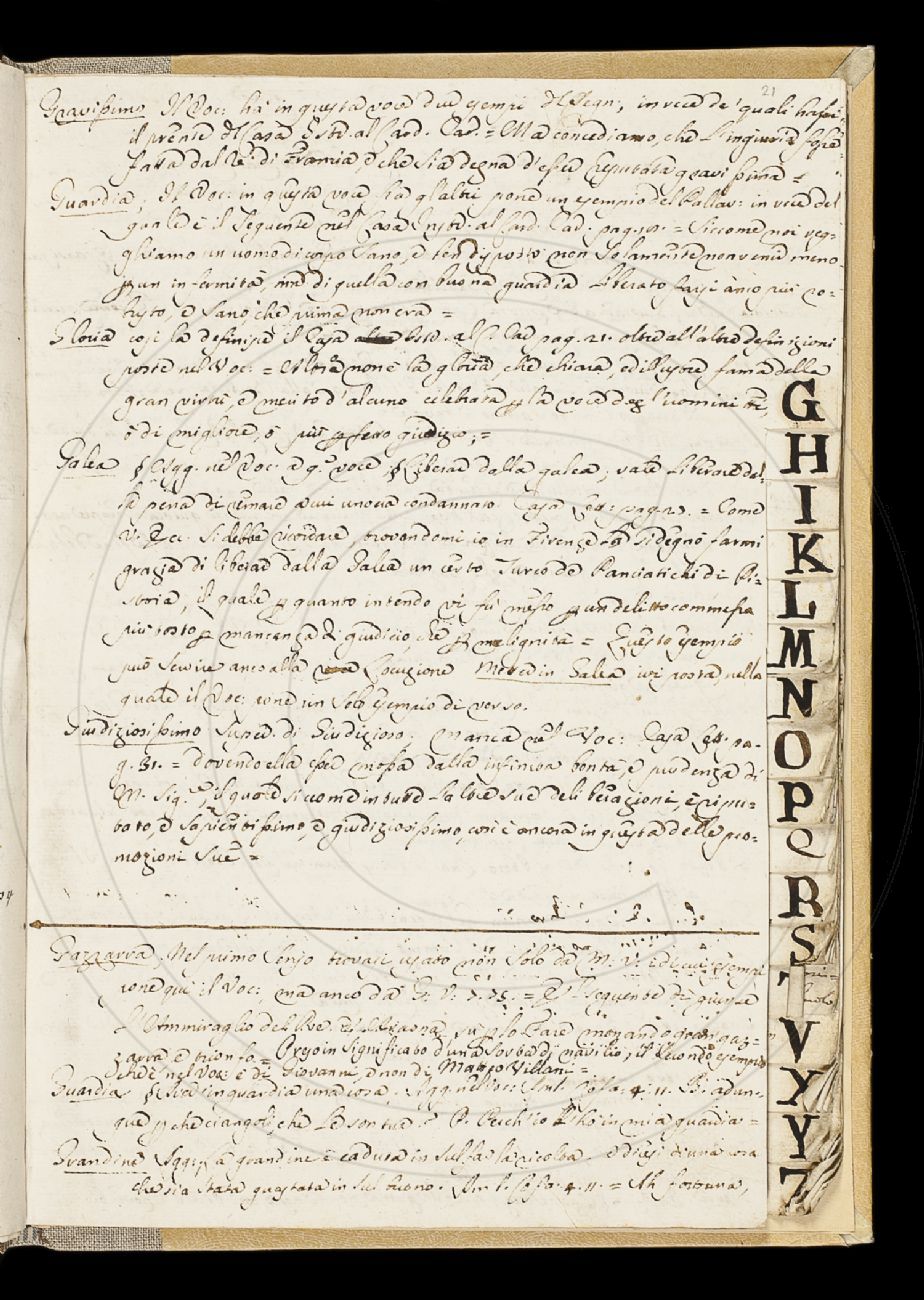 21
Gravissimo Il Voc: ha in questa voce due esempi del Segn:, in vece de' quali
il presente del Casa Istr. al Card. Caraf. = Ma concediamo, che l'ingiuria fosse
fatta dal Re di Francia, e che sia degna d'esser reputata gravissima =
Guardia, Il Voc: in questa voce fra gl'altri pone un esempio del Pallav: in vece del
quale è il seguente nel Casa Instr. al Card. Caraf. pag. = Siccome noi veg-
ghiamo un uomo di corpo sano, e ben disposto non solamente non venir meno
per un infermità, ma di quella con buona guardia liberato farsi anco più ro-
busto, e sano, che prima non era =
Gloria così la definisce il Casa Istr. al C. Caraf. pag. 21. oltre all'altre definizioni
poste nel Voc: = Altro non è la gloria, che chiara, ed illustre fama delle
gran virtù, e merito d'alcuno celebrata per la voce degl'uomini
o di migliore, o più giudizio; =
Galea § Agg. nel Voc: a q.a voce § Liberar dalla galea; vale Liberare dal-
la pena di remare a cui uno era condannato. Casa Lett: pag. 23. = Come
V. Ecc. si debbe ricordare, trovandomi io in Firenze si degnò farmi
grazia di liberar dalla Galea un certo Turco de' Panciatichi di Pi-
stoia, il quale per quanto intendo vi fu messo per un delitto commesso
più tosto per mancanza di giudicio, che per malignità = Questo esempio
può servire anco alla locuzione Mettere in Galea ivi posta, nella
quale il Voc: pone un solo esempio di verso.
Giudiziosissimo Superl. di Giudizioso; manca nel Voc: Casa Lett. pa-
g. 31. = dovendo ella esser mossa dalla infinita bontà, e prudenza di
N. Sig.re, il quale siccome in tutte l'altre sue deliberazioni, è ripu-
tato, e sapientissimo, e giudiziosissimo, così è ancora in questa delle pro-
mozioni sue =
Gazzarra. Nel primo senso trovasi usato non solo da M. V. di cui esempi
pone qui il Voc:, ma anco da G. V. = E il seguente dì giunse
L'Ammiraglio del Re menando gran gaz-
zarra e trionfo. = Preso in significato d'una sorta di navilio, il secondo esempio
che è nel Voc: è di Giovanni, e non di Matteo Villani =
Guardia § Aver in guardia una cosa. Agg. nel Voc: Ant. Cofa. 4. 11. B. adun-
que che ciangoli, che le son tue? P. Perch'io l'ho in mia guardia =
Grandine Agg: la grandine è caduta in sul far la ricolta. e dicesi di una cosa
che sia stata guastata in sul buono. Ant. Cofa. 4. 11. = Ah fortuna,
G
H
I
K
L
M
N
O
P
Q
R
S
T
V
Y
Y
Z